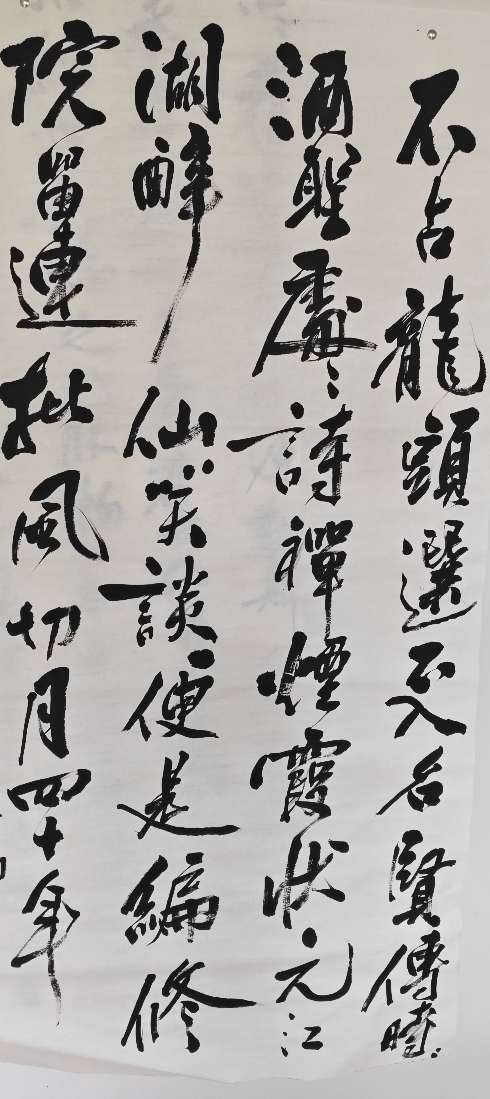 不占龍頭選不入名賢傳時〻
酒聖處〻詩禪煙霞狀元江
湖醉仙笑談便是編修
院留連批風切月四十年